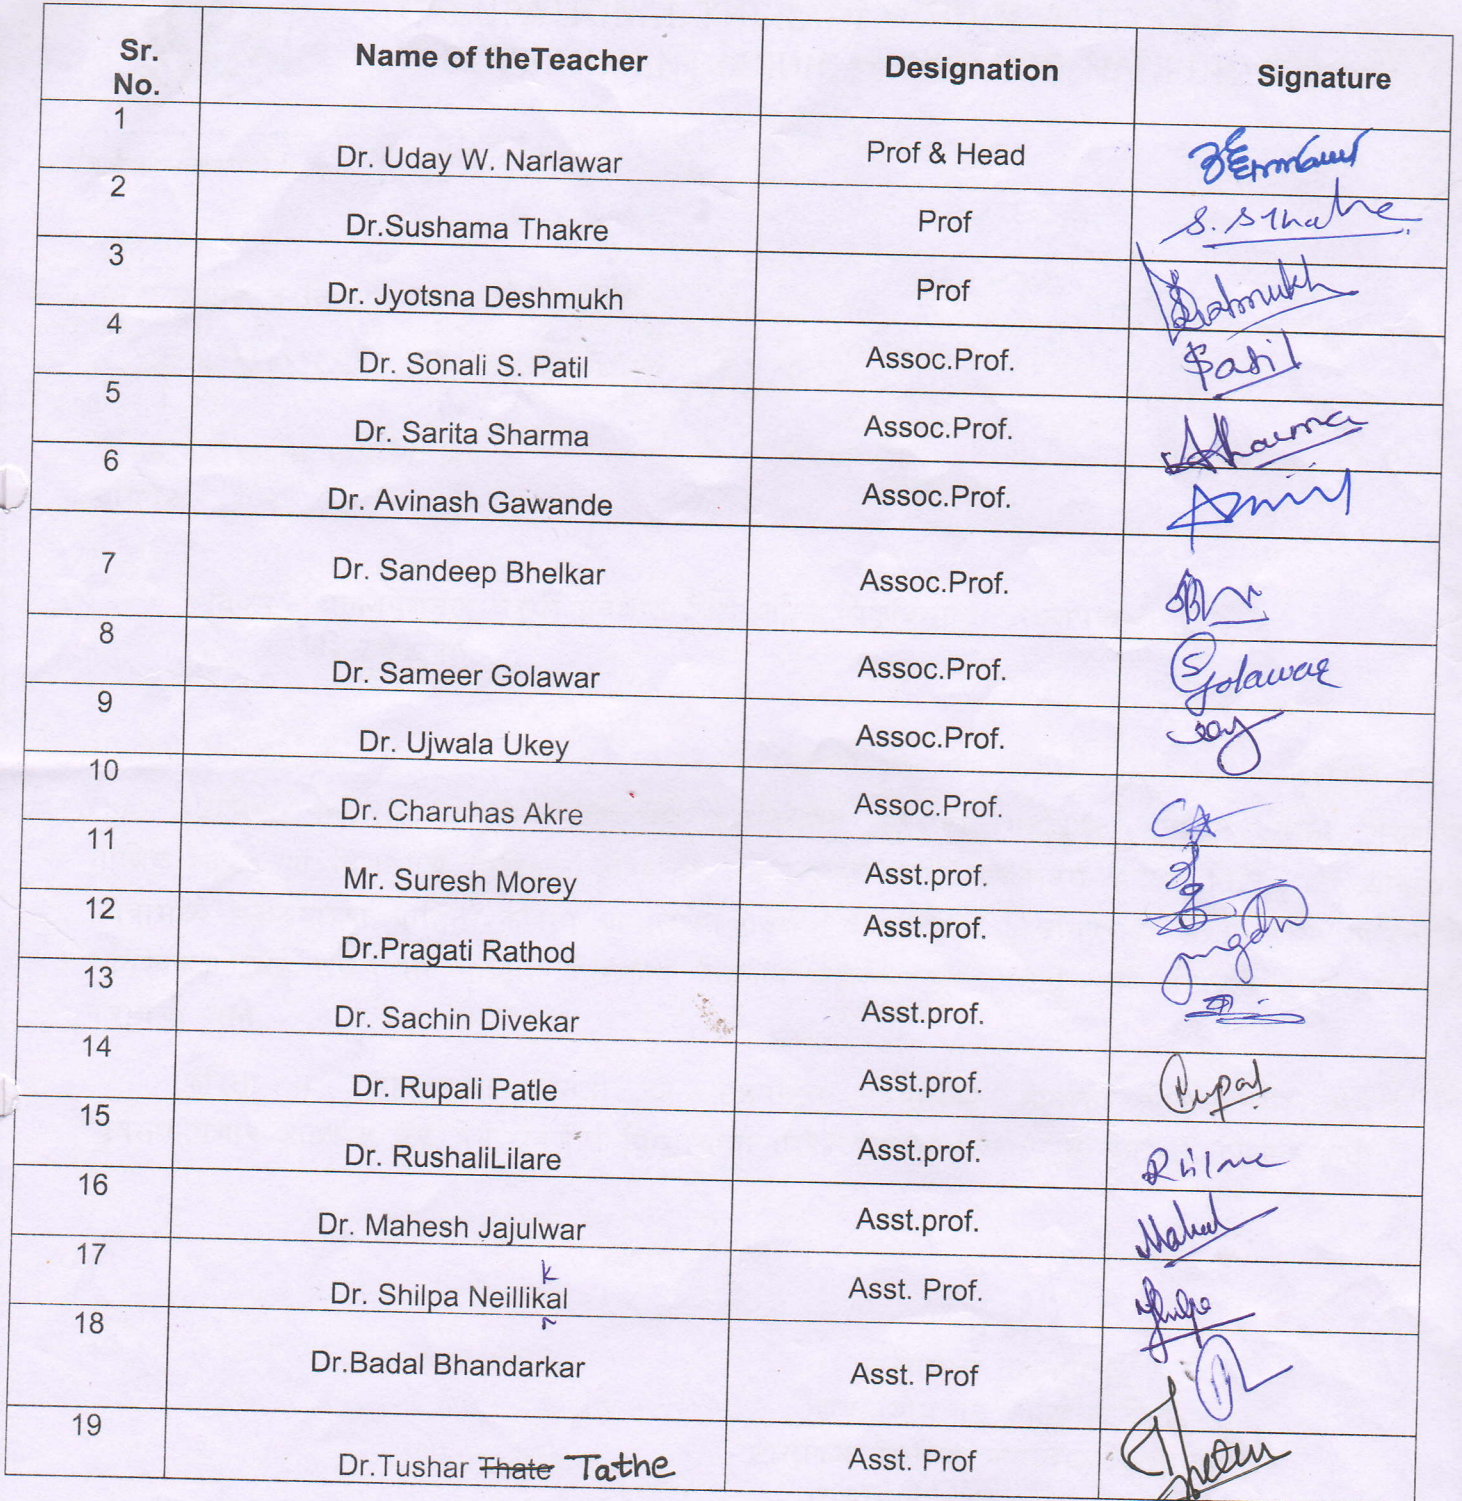 Sr. No. Name of theTeacher Designation Signature
1 Dr. Uday W. Narlawar Prof & Head
2 Dr.Sushama Thakre Prof S. SThakre
3 Dr. Jyotsna Deshmukh Prof Deshmukh
4 Dr. Sonali S. Patil Assoc.Prof. SPatil
5 Dr. Sarita Sharma Assoc.Prof. Sharma
6 Dr. Avinash Gawande Assoc.Prof.
7 Dr. Sandeep Bhelkar Assoc.Prof.
8 Dr. Sameer Golawar Assoc.Prof. SGolawar
9 Dr. Ujwala Ukey Assoc.Prof.
10 Dr. Charuhas Akre Assoc.Prof. CA
11 Mr. Suresh Morey Asst.prof.
12 Dr.Pragati Rathod Asst.prof.
13 Dr. Sachin Divekar Asst.prof.
14 Dr. Rupali Patle Asst.prof. Rupal
15 Dr. RushaliLilare Asst.prof.
16 Dr. Mahesh Jajulwar Asst.prof.
k
17 Dr. Shilpa Neillikal Asst. Prof. Shilpa
18 Dr.Badal Bhandarkar Asst. Prof
19 Dr.Tushar Thate Tathe Asst. Prof